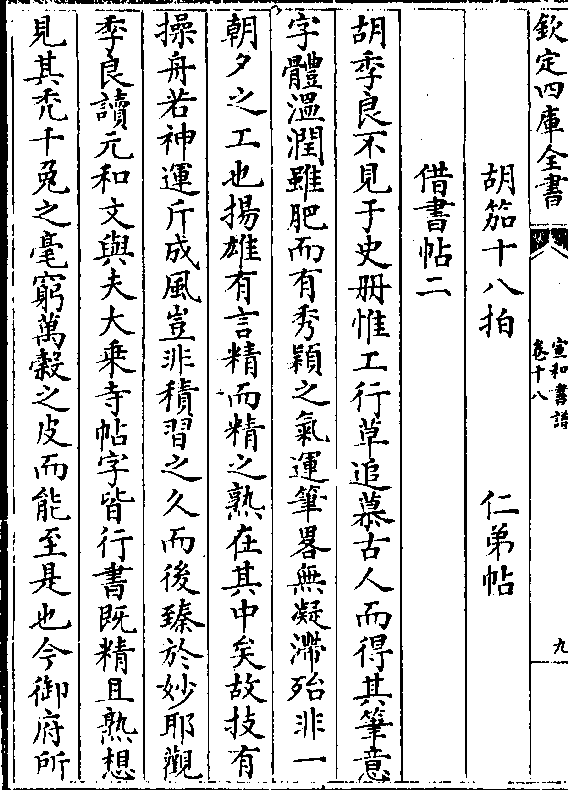 欽定四庫全書
宣和書譜
卷十八
九
胡笳十八拍 仁弟帖
借書帖二
胡季良不見于史冊惟工行草追慕古人而得其筆意
字體溫潤雖肥而有秀穎之氣運筆畧無凝滯殆非一
朝夕之工也揚雄有言精而精之熟在其中矣故技有
操舟若神運斤成風豈非積習之久而後臻於妙耶觀
季良讀元和文與夫大乗寺帖字皆行書既精且熟想
見其禿千兎之毫窮萬榖之皮而能至是也今御府所